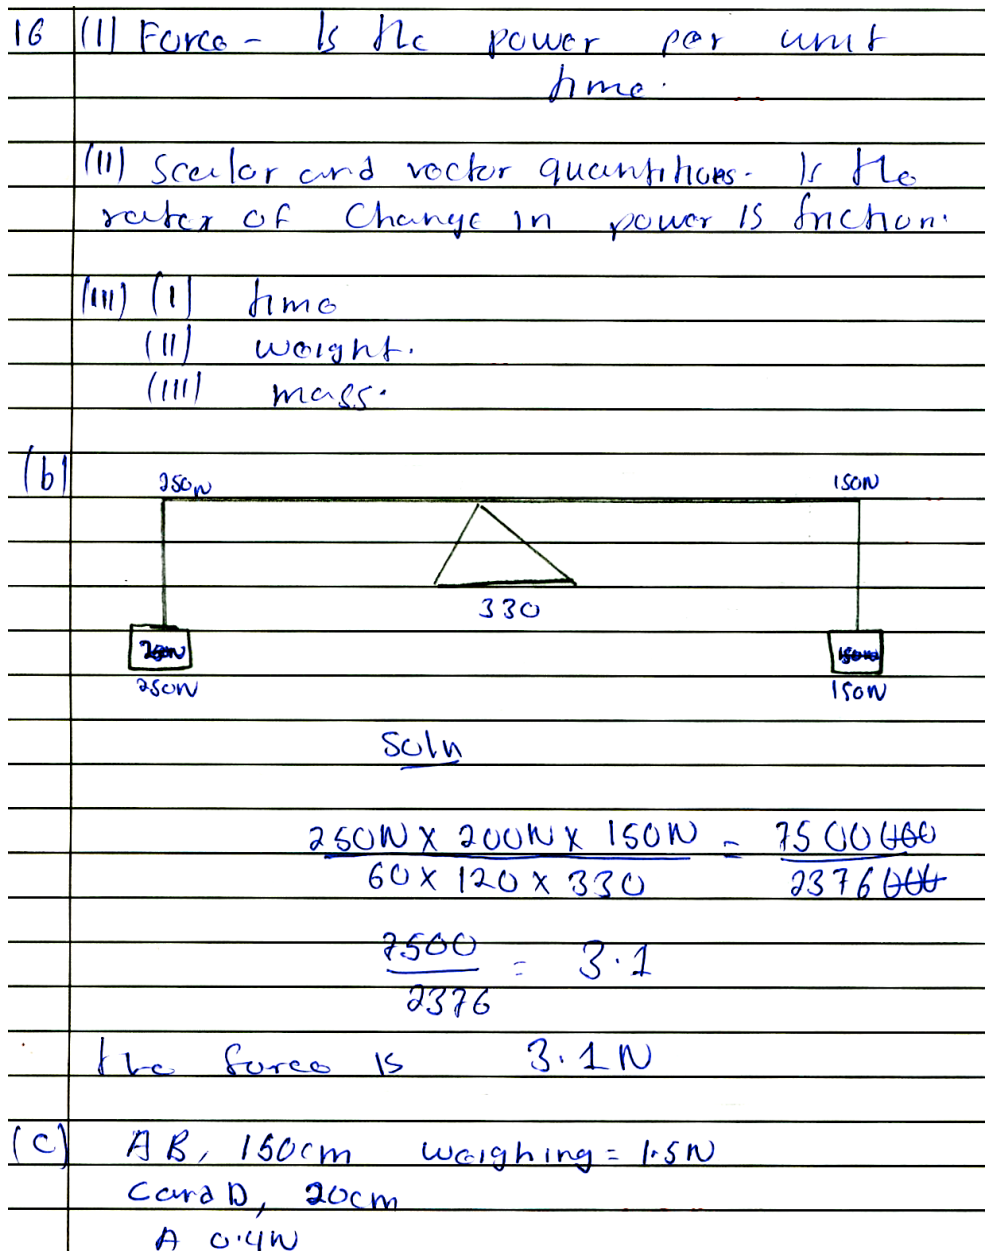 16 (I) Force - Is the power per unit
time.
(II) Scalor and vector quantitues. Is the
rates of Change in power is friction.
(III) (I) time
(II) weight.
(III) mass.
(b) 250N 150N
330
250N 150N
Soln
250N x 200N x 150N = 7500000
60 x 120 x 330 2376000
7500 = 3.1
2376
the force is 3.1N
(c) AB, 150cm weighing = 1.5N
C and D, 20cm
A 0.4N